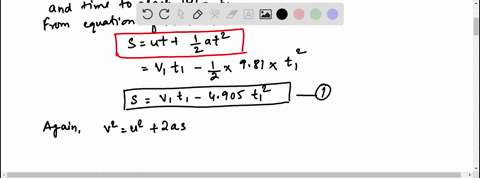 and time to
From equation
S = ut + 1/2 at²
= V₁ t₁ - 1/2 × 9.81 × t₁²
S = V₁ t₁ - 4.905 t₁² — ①
Again, v² = u² + 2as